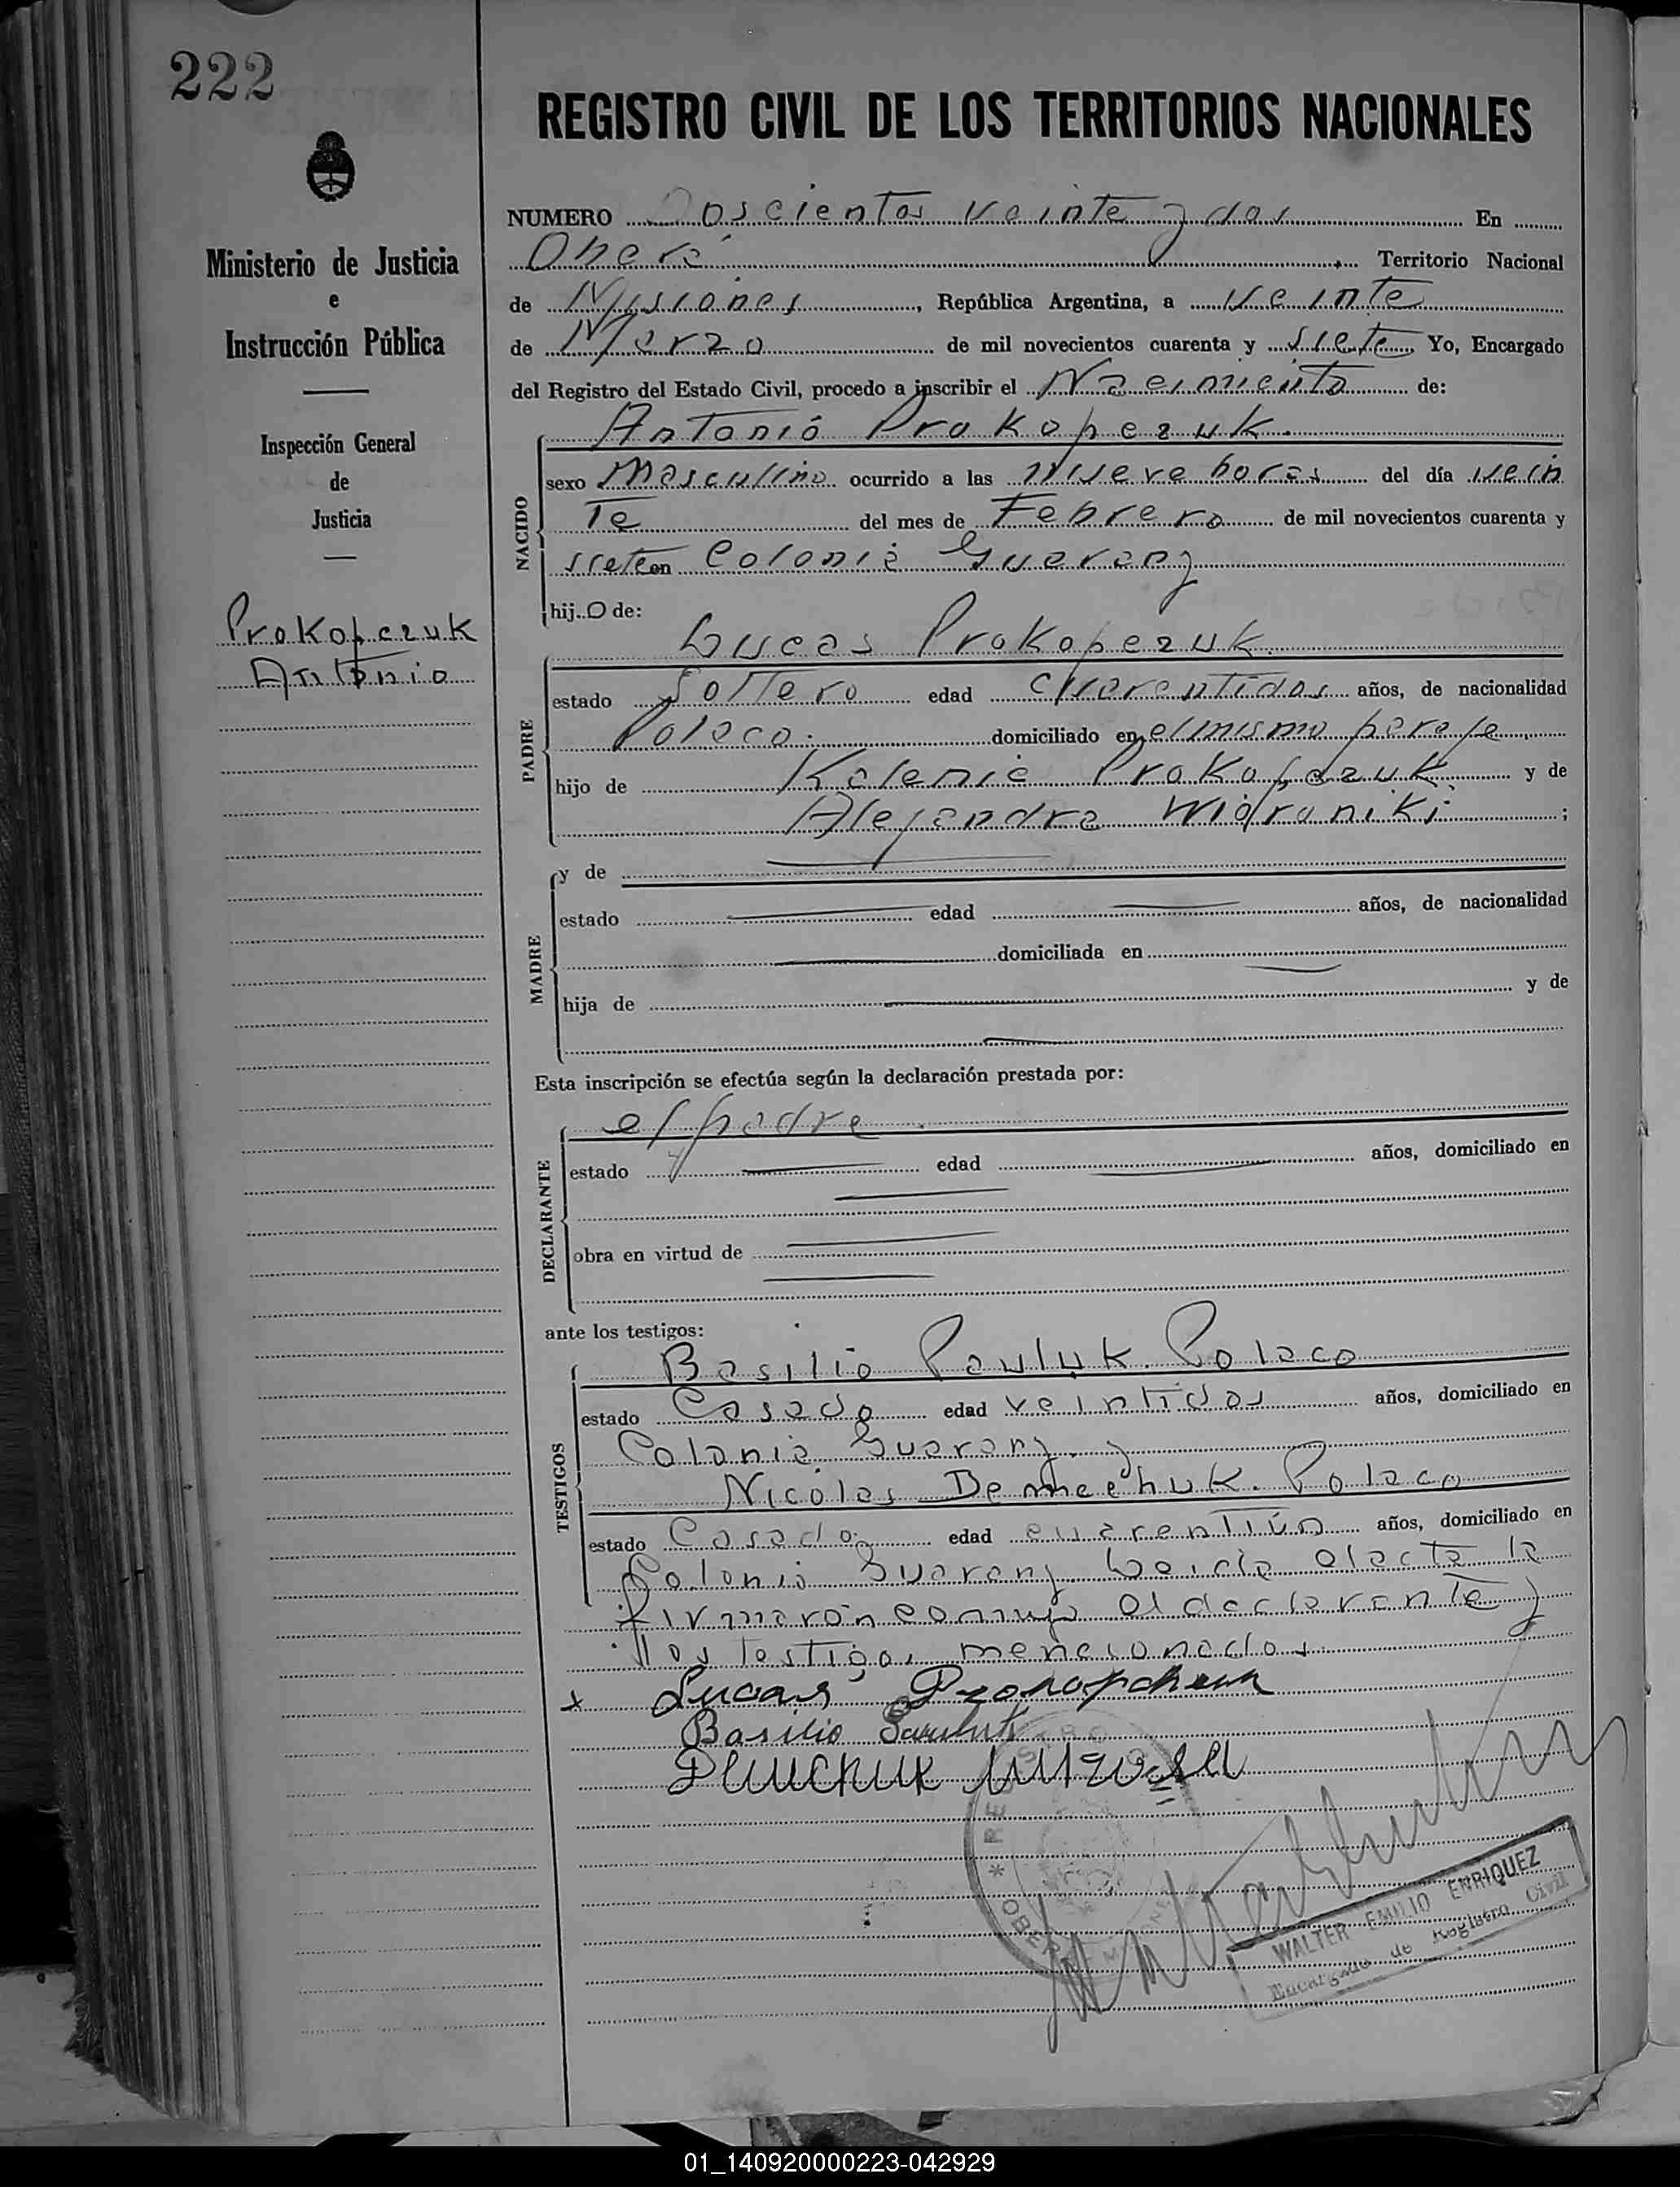 222
REGISTRO CIVIL DE LOS TERRITORIOS NACIONALES
Ministerio de Justicia
e
Instrucción Pública
Inspección General
de
Justicia
Prokopczuk
Antonio
NUMERO Doscientos veinte y dos En
Oberá Territorio Nacional
de Misiones, República Argentina, a veinte
de Marzo de mil novecientos cuarenta y siete Yo, Encargado
del Registro del Estado Civil, procedo a inscribir el Nacimiento de:
NACIDO
Antonio Prokopczuk.
sexo Masculino ocurrido a las nueve horas del día vein
te del mes de Febrero de mil novecientos cuarenta y
siete en Colonia Guarany
hijo de:
PADRE
Lucas Prokopczuk.
estado Soltero edad cuarentidos años, de nacionalidad
Polaco. domiciliado en el mismo paraje
hijo de Prokopczuk y de
Alejandra ;
MADRE
y de
estado edad años, de nacionalidad
domiciliada en
hija de y de
Esta inscripción se efectúa según la declaración prestada por:
DECLARANTE
el padre.
estado edad años, domiciliado en
obra en virtud de
ante los testigos:
TESTIGOS
Basilio Pauluk. Polaco
estado Casado edad veintidos años, domiciliado en
Colonia Guarany. y
Nicolas Polaco
estado Casado edad cuarentiún años, domiciliado en
Colonia Guarany Leida el acta la
firmaron conmigo el declarante y
los testigos mencionados.
x Lucas
Basilio
REGISTRO
OBERÁ
WALTER EMILIO ENRIQUEZ
Encargado de Registro Civil
01_140920000223-042929